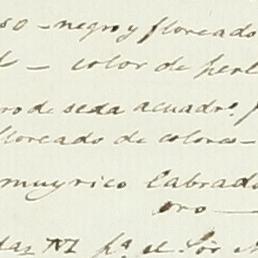 so - negro y floreado
color de perl
ro de seda acuadr.º
floreado de colores -
muy rico labrado
oro —
p.ª el Sór